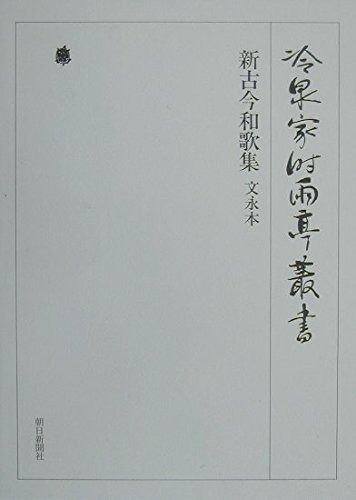 冷泉家时雨亭叢書
新古今和歌集 文永本
朝日新聞社